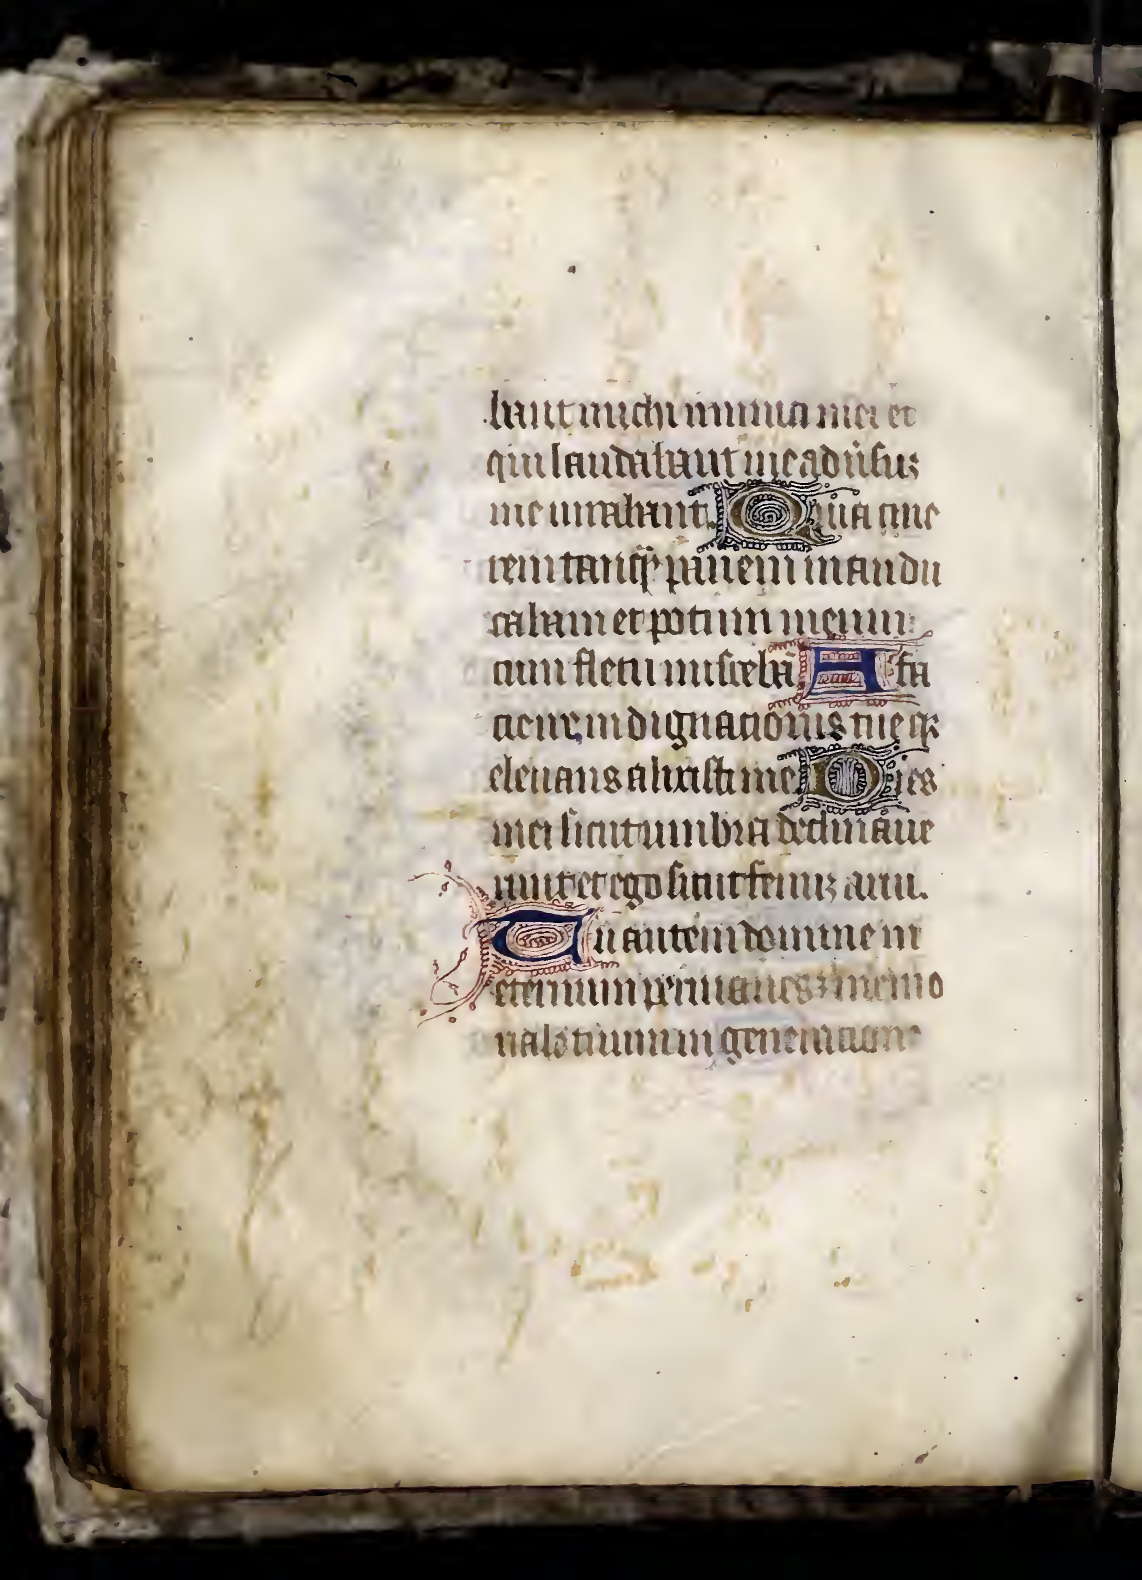 bant michi inimici mei et
qui laudabant me aduersus
me iurabant. Quia cine
rem tanq̃ panem mandu
cabam et potum meum
cum fletu miscebã A fa
cie ire indignacionis tue q̃
eleuans alisisti me Dies
mei sicut umbra declinaue
runt et ego sicut fenum arui.
Tu autem domine in
eternum permanes ⁊ memo
riale tuum in generacione